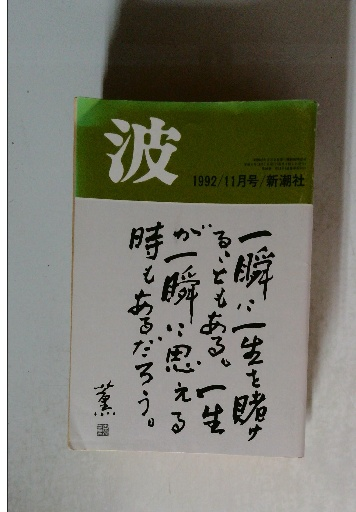 波
1992/11月号/新潮社
一瞬に一生を賭け
ることもある。一生
が一瞬に思える
時もあるだろう。
薫